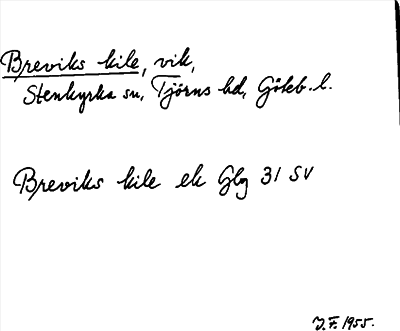 Breviks kile, vik,
Stenkyrka sn, Tjörns hd, Göteb. l.
Breviks kile ek Gbg 31 SV
J.F. 1955.